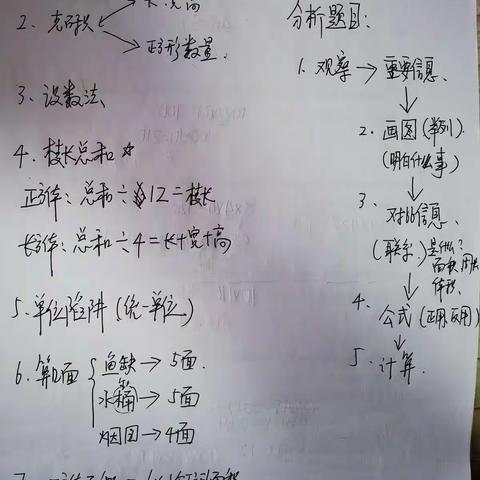 长·宽·高
2、克 积
正方形数量.
3、设数法
4、棱长总和 ☆
正方体：总和÷12=棱长
长方体：总和÷4=长+宽+高
5、单位陷阱 (统一单位)
6、算几面
鱼缺→5面.
水箱→5面
烟囱→4面
分析题目：
1、观察→重要信息、
2、画图(举例).
(明白什么事)
3、对比信息、
(联系.)是什么?
面积.周长
体积、
4、公式(正用.反用)
5、计算.